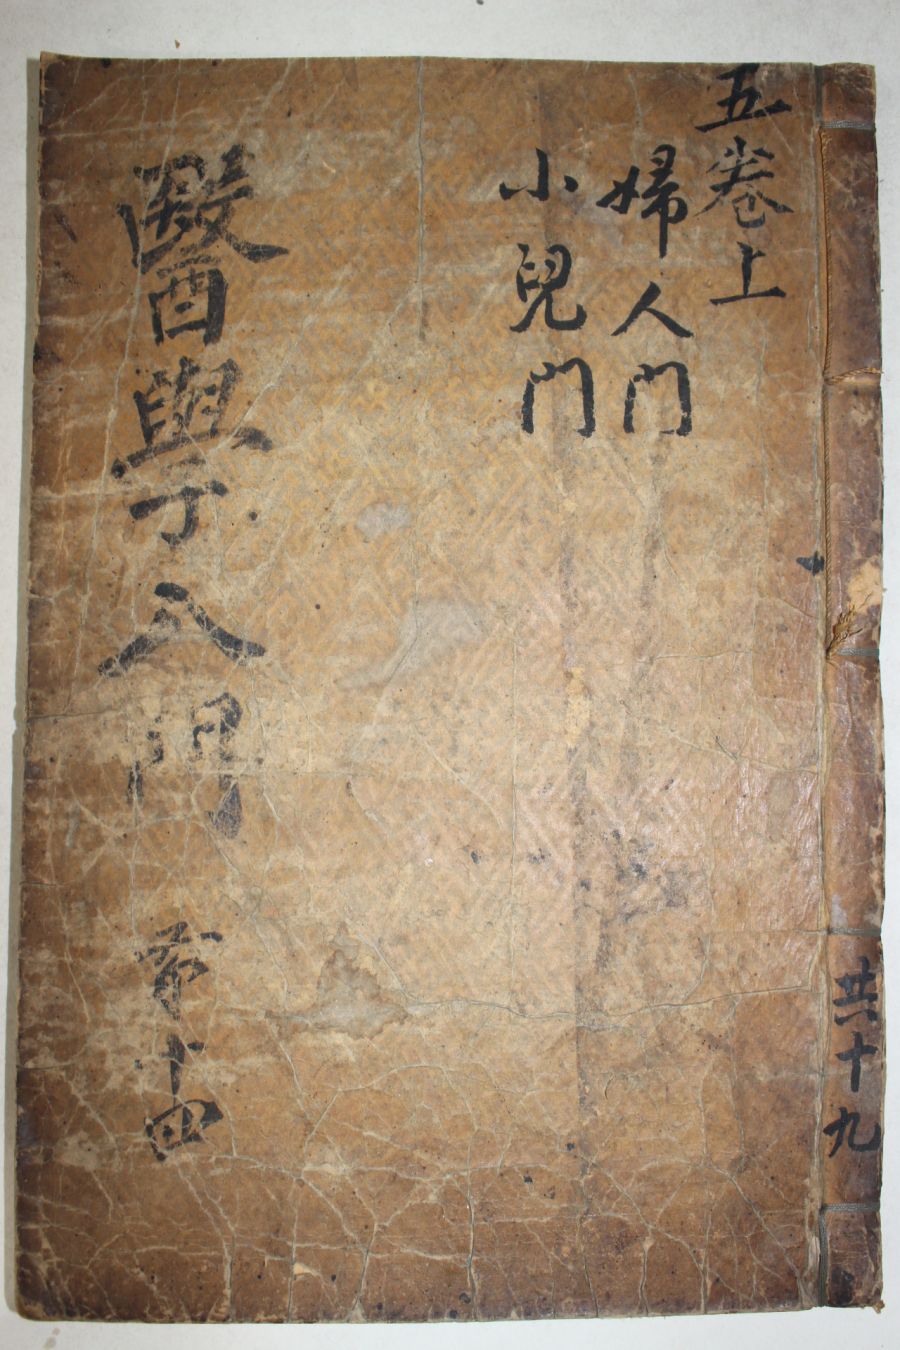 五卷上
婦人門
小兒門
醫學入門
第十四
共十九